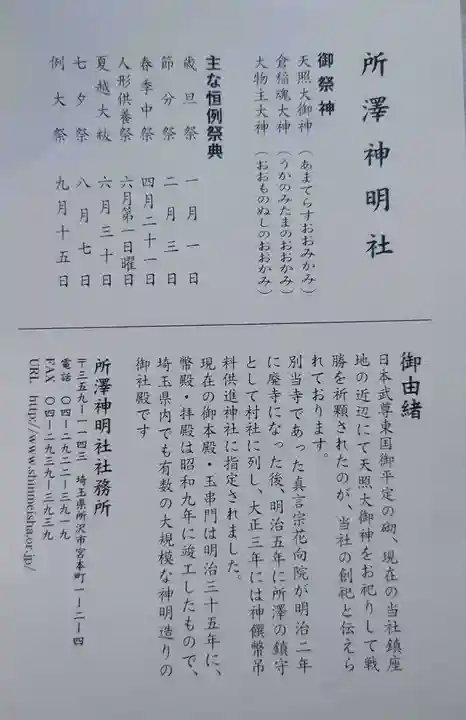 所澤神明社
御祭神
天照大御神（あまてらすおおみかみ）
倉稲魂大神（うかのみたまのおおかみ）
大物主大神（おおものぬしのおおかみ）
主な恒例祭典
歳旦祭　一月一日
節分祭　二月三日
春季中祭　四月二十一日
人形供養祭　六月第一日曜日
夏越大祓　六月三十日
七夕祭　八月七日
例大祭　九月十五日
御由緒
日本武尊東国御平定の砌、現在の当社鎮座
地の近辺にて天照大御神をお祀りして戦
勝を祈願されたのが、当社の創祀と伝えら
れております。
別当寺であった真言宗花向院が明治二年
に廃寺になった後、明治五年に所澤の鎮守
として村社に列し、大正三年には神饌幣帛
料供進神社に指定されました。
現在の御本殿・玉串門は明治三十五年に、
幣殿・拝殿は昭和九年に竣工したもので、
埼玉県内でも有数の大規模な神明造りの
御社殿です
所澤神明社社務所
〒三五九－一一四三　埼玉県所沢市宮本町一－二－四
電話　〇四－二九二二－三九一九
FAX　〇四－二九三九－三九三九
URL　http://www.shinmeisha.or.jp/